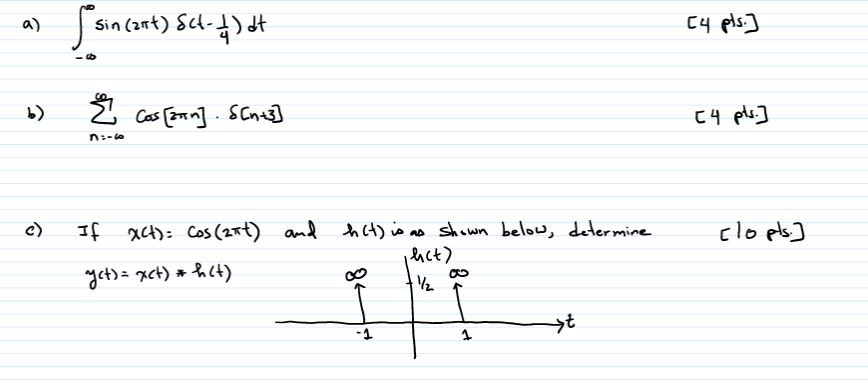 a) ∫_{-∞}^{∞} sin(2πt) δ(t-1/4) dt [4 pts.]
b) ∑_{n=-∞}^{∞} Cos[2πn] · δ[n+3] [4 pts.]
c) If x(t) = Cos(2πt) and h(t) is as shown below, determine [10 pts.]
y(t) = x(t) * h(t)
h(t)
∞ 1/2 ∞
t
-1 1